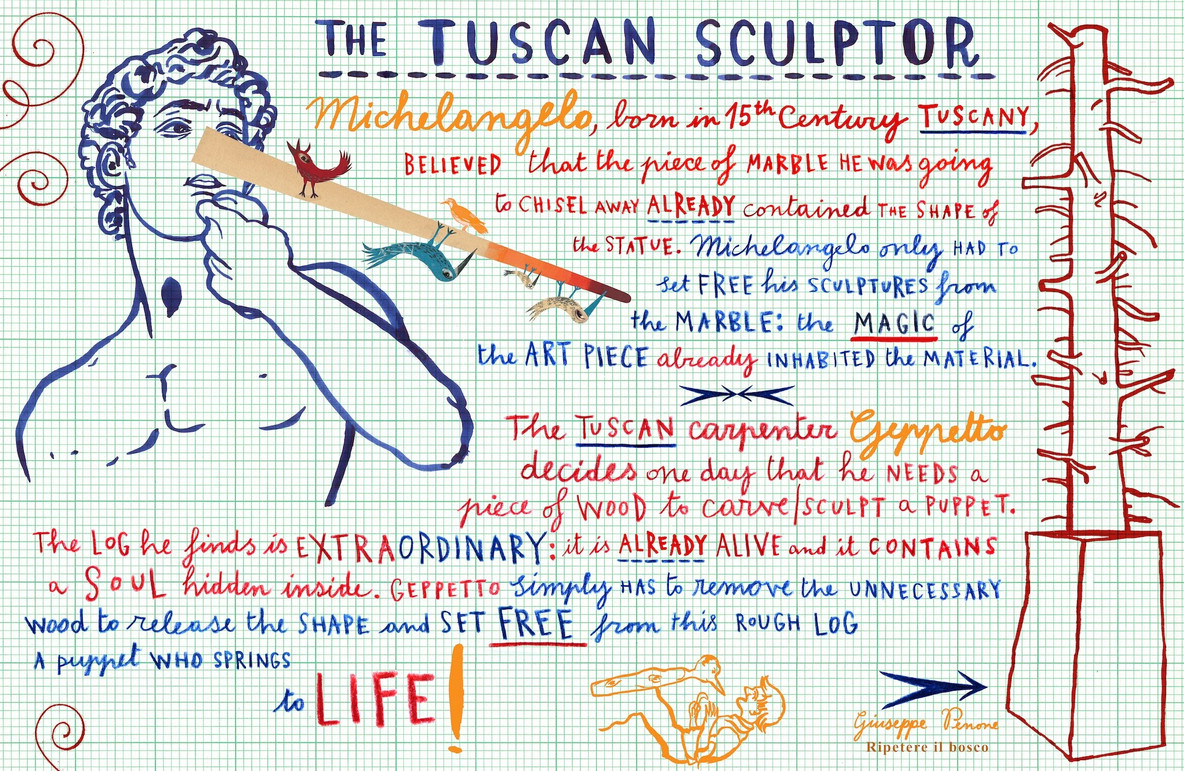 THE TUSCAN SCULPTOR
Michelangelo, born in 15th Century TUSCANY,
BELIEVED that the piece of MARBLE HE was going
to CHISEL AWAY ALREADY contained THE SHAPE of
the STATUE. Michelangelo only HAD TO
set FREE his SCULPTURES from
the MARBLE: the MAGIC of
the ART PIECE already INHABITED the MATERIAL.
The TUSCAN carpenter Geppetto
decides one day that he NEEDS a
piece of WOOD to carve/SCULPT a PUPPET.
The LOG he finds is EXTRAORDINARY: it is ALREADY ALIVE and it CONTAINS
a SOUL hidden inside. GEPPETTO simply HAS to remove the UNNECESSARY
wood to release the SHAPE and SET FREE from this ROUGH LOG
A puppet WHO SPRINGS
to LIFE!
Giuseppe Penone
Ripetere il bosco